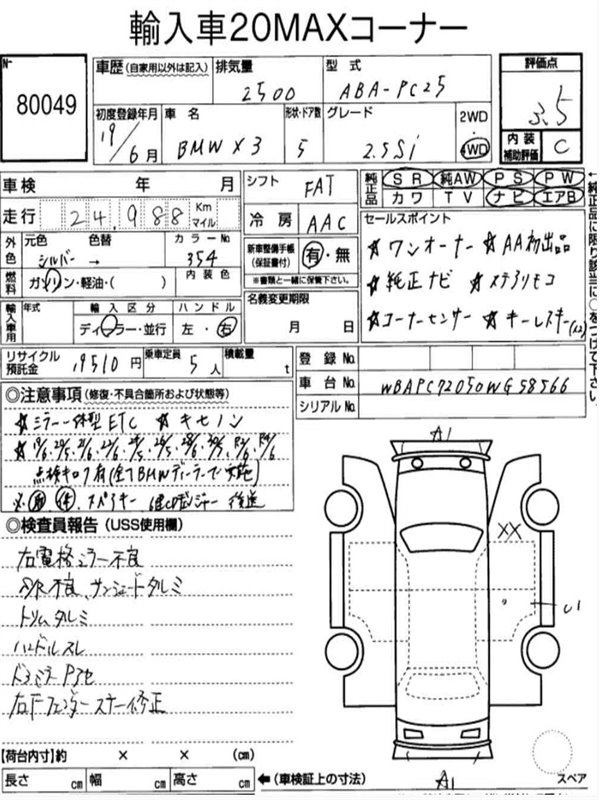 輸入車20MAXコーナー
№ 80049
車歴 (自家用以外は記入) 排気量 2500 型式 ABA-PC25 評価点 3.5
初度登録年月 19年6月 車名 BMW X3 形状・ドア数 5 グレード 2.5Si 2WD 4WD 内装補助評価 C
車検 年 月 シフト FAT 純正品 SR 純AW PS PW
カワ TV ナビ エアB
走行 24,988 Km マイル 冷房 AAC セールスポイント
外色 元色 シルバー 色替 → カラーNo 354 新車整備手帳(保証書付) 有・無 ※書類と一緒に保管下さい。
☆ワンオーナー ☆AA初出品
燃料 ガソリン・軽油・( ) 内装色
☆純正ナビ ☆ステアリモコ
輸入車用 年式 輸入区分 ディーラー・並行 ハンドル 左・右 名義変更期限 月 日
☆コーナーセンサー ☆キーレスキー(×2)
リサイクル預託金 19510円 乗車定員 5人 積載量 t 登録No.
車台No. WBAPC72050WG58566
シリアルNo.
◎注意事項 (修復・不具合箇所および状態等)
☆ミラー一体型ETC ☆キセノン
☆19/6, 20/5, 21/6, 22/6, 24/5, 26/5, 28/6, 30/5, R2/6, R4/6
点検キロク有(全てBMWディーラーで実施)
スペアキー 後送
◎検査員報告 (USS使用欄)
右電格ミラー不良
内外不良、サンシェードタルミ
トリムタルミ
ハンドルスレ
ドアミラーPアセ
右Fフェンダーステー修正
A1
XX
U1
A1
【荷台内寸】約 × × (cm)
長さ cm 幅 cm 高さ cm ←(車検証上の寸法) スペア